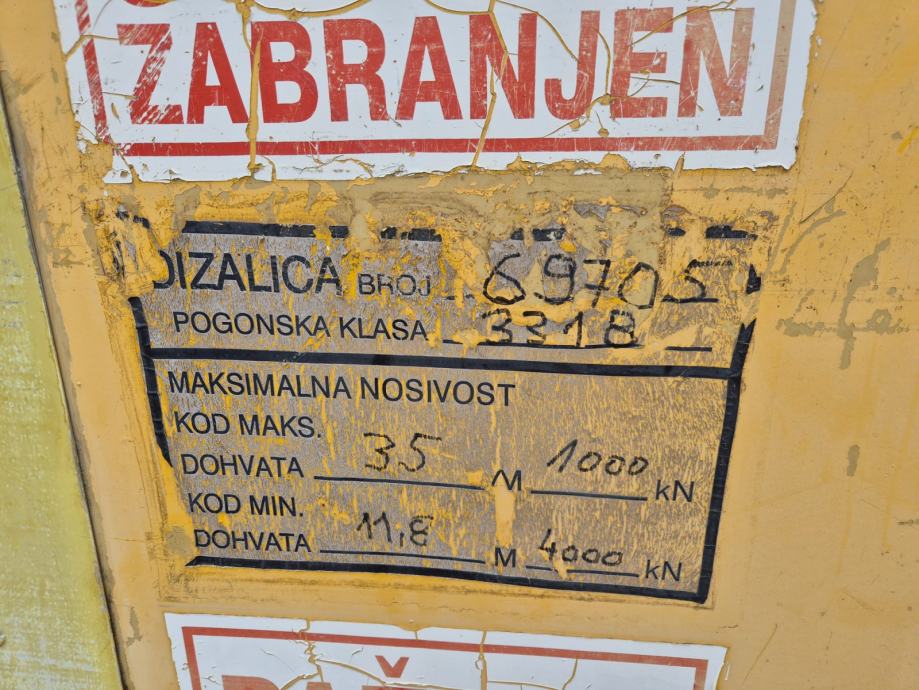 ZABRANJEN
DIZALICA BROJ 69705
POGONSKA KLASA 3318
MAKSIMALNA NOSIVOST
KOD MAKS.
DOHVATA 35 M 1000 kN
KOD MIN.
DOHVATA 11,8 M 4000 kN